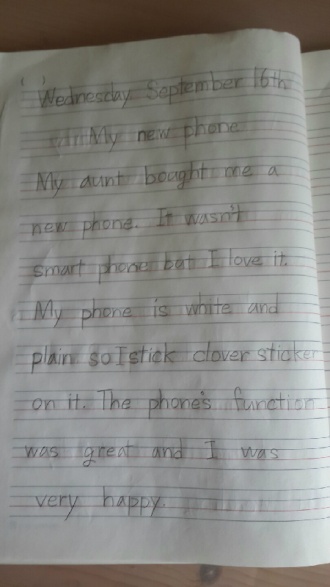 ( )
Wednesday September 16th
My new phone
My aunt bought me a
new phone. It wasn't
smart phone but I love it.
My phone is white and
plain so I stick clover sticker
on it. The phone's function
was great and I was
very happy.